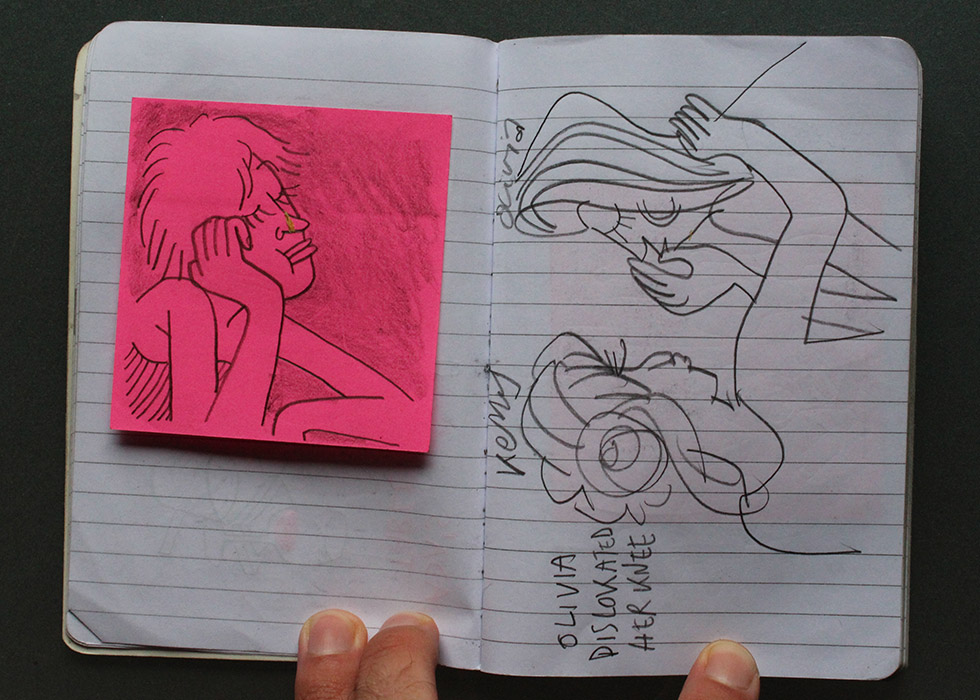 Olivia
Kemy
OLIVIA
DISLOKATED
HER KNEE